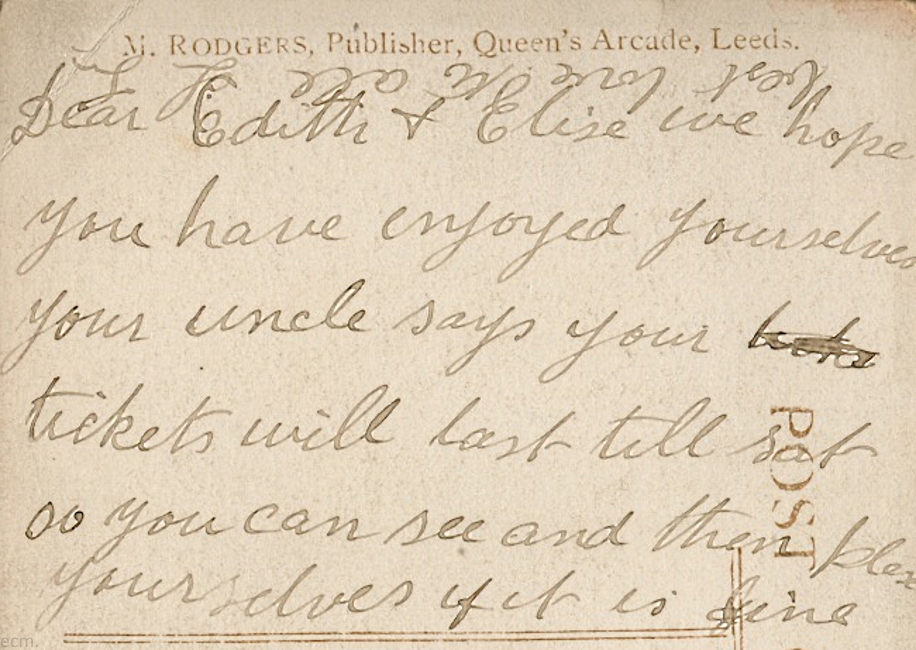 M. RODGERS, Publisher, Queen's Arcade, Leeds.
best love
Dear Edith & Elise we hope
you have enjoyed yourselves
your uncle says your
tickets will last till sat
so you can see and then
yourselves if it is fine
POST
ecm.